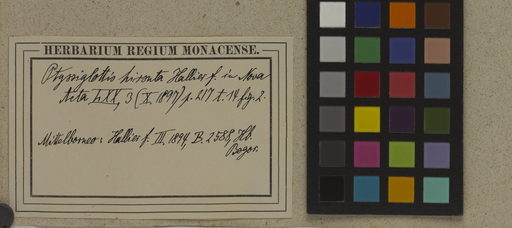 HERBARIUM REGIUM MONACENSE.
Ptyssiglottis hirsuta Hallier f. in Nova
Acta LXX, 3 (X. 1897) p. 217 t. 14 fig. 2.
Mittelborneo: Hallier f. III. 1894, B. 2588, Hb.
Bogor.